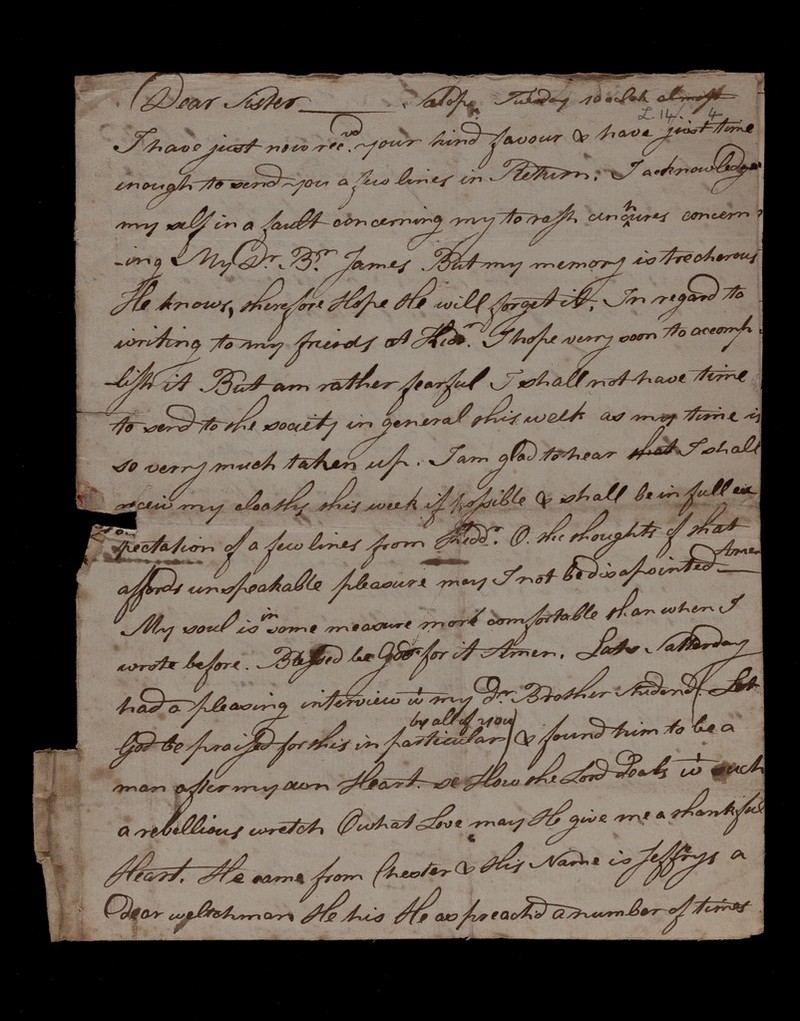 Dear Sister Salop, Tuesday 10 oclok almost
L.14. 4
I have just now recvd. your kind favour & have just time
enough to send you a few lines in Return. I acknowledge
my self in a fault concerning my to rash cenhures concern
-ing My Dr. Br. James But my memory is trecherous
He knows, therefore Hope He will forget it. In regard to
writing to my friends At Kidr. I hope verry soon to accomp
-lish it But am rather fearful I shall not have time
to send to the society in general this week as my time is
so verry much taken up. I am glad to hear that I shall
receiv my cloaths this week if possible & shall be in full ex
pectation of a few lines from Kiddr. O. the thoughts of that
affords unspeakable pleasure may I not be disapointed Amen
My soul is in some measure more comfortable than when I
wrote before. Blessed be God for it Amen. Last Satterday
had a pleasing interview wt my Dr. Brother Student (Let
God be praised for this in particular by all of you) & found him to be a
man after my own Heart. se How the Lord Deals wt such
a rebellious wretch O what Love may He give me a thankful
Heart. He came from Chester & His Name is Jeffrys a
Dear welchman He his He as preach'd a number of times